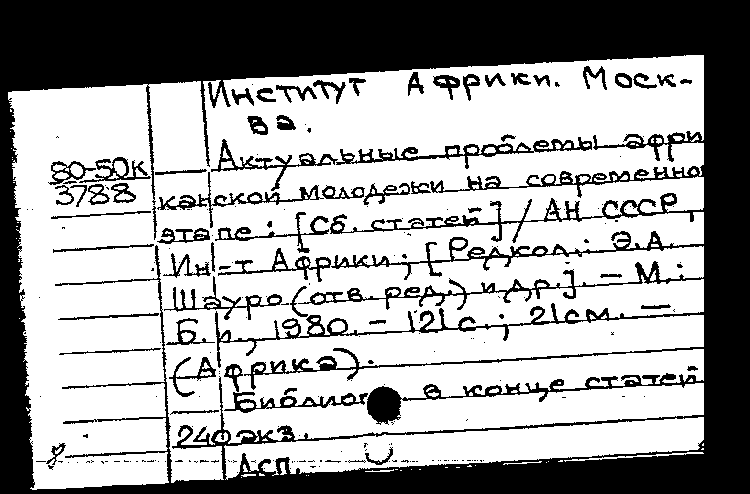 Институт Африки. Моск-
ва.
80-50к
3788
Актуальные проблемы афри
канской молодежи на современно
этапе : [Сб. статей] / АН СССР,
Ин-т Африки ; [Редкол.: Э.А.
Шауро (отв. ред.) и др.]. — М.:
Б. и., 1980. - 121 с.; 21 см. —
(Африка).
в конце статей
240 экз.